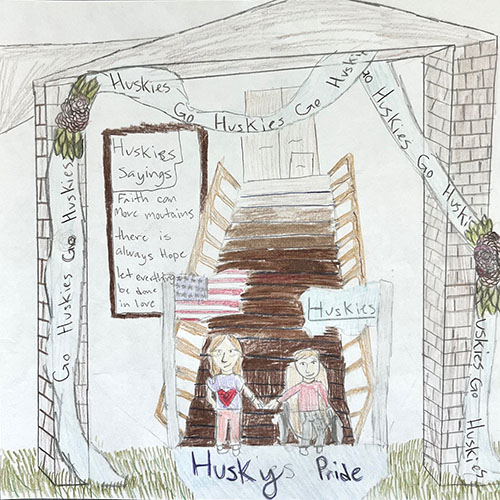 Huskies Go Huskies Go Huskies
Go Huskies Go Huskies
Go Huskies Go Huskies Go Huskies
Huskies Go Huskies
Huskies
Sayings
Faith can
Move moutains
there is
always Hope
let everything
be done
in love
Huskies
Huskys Pride